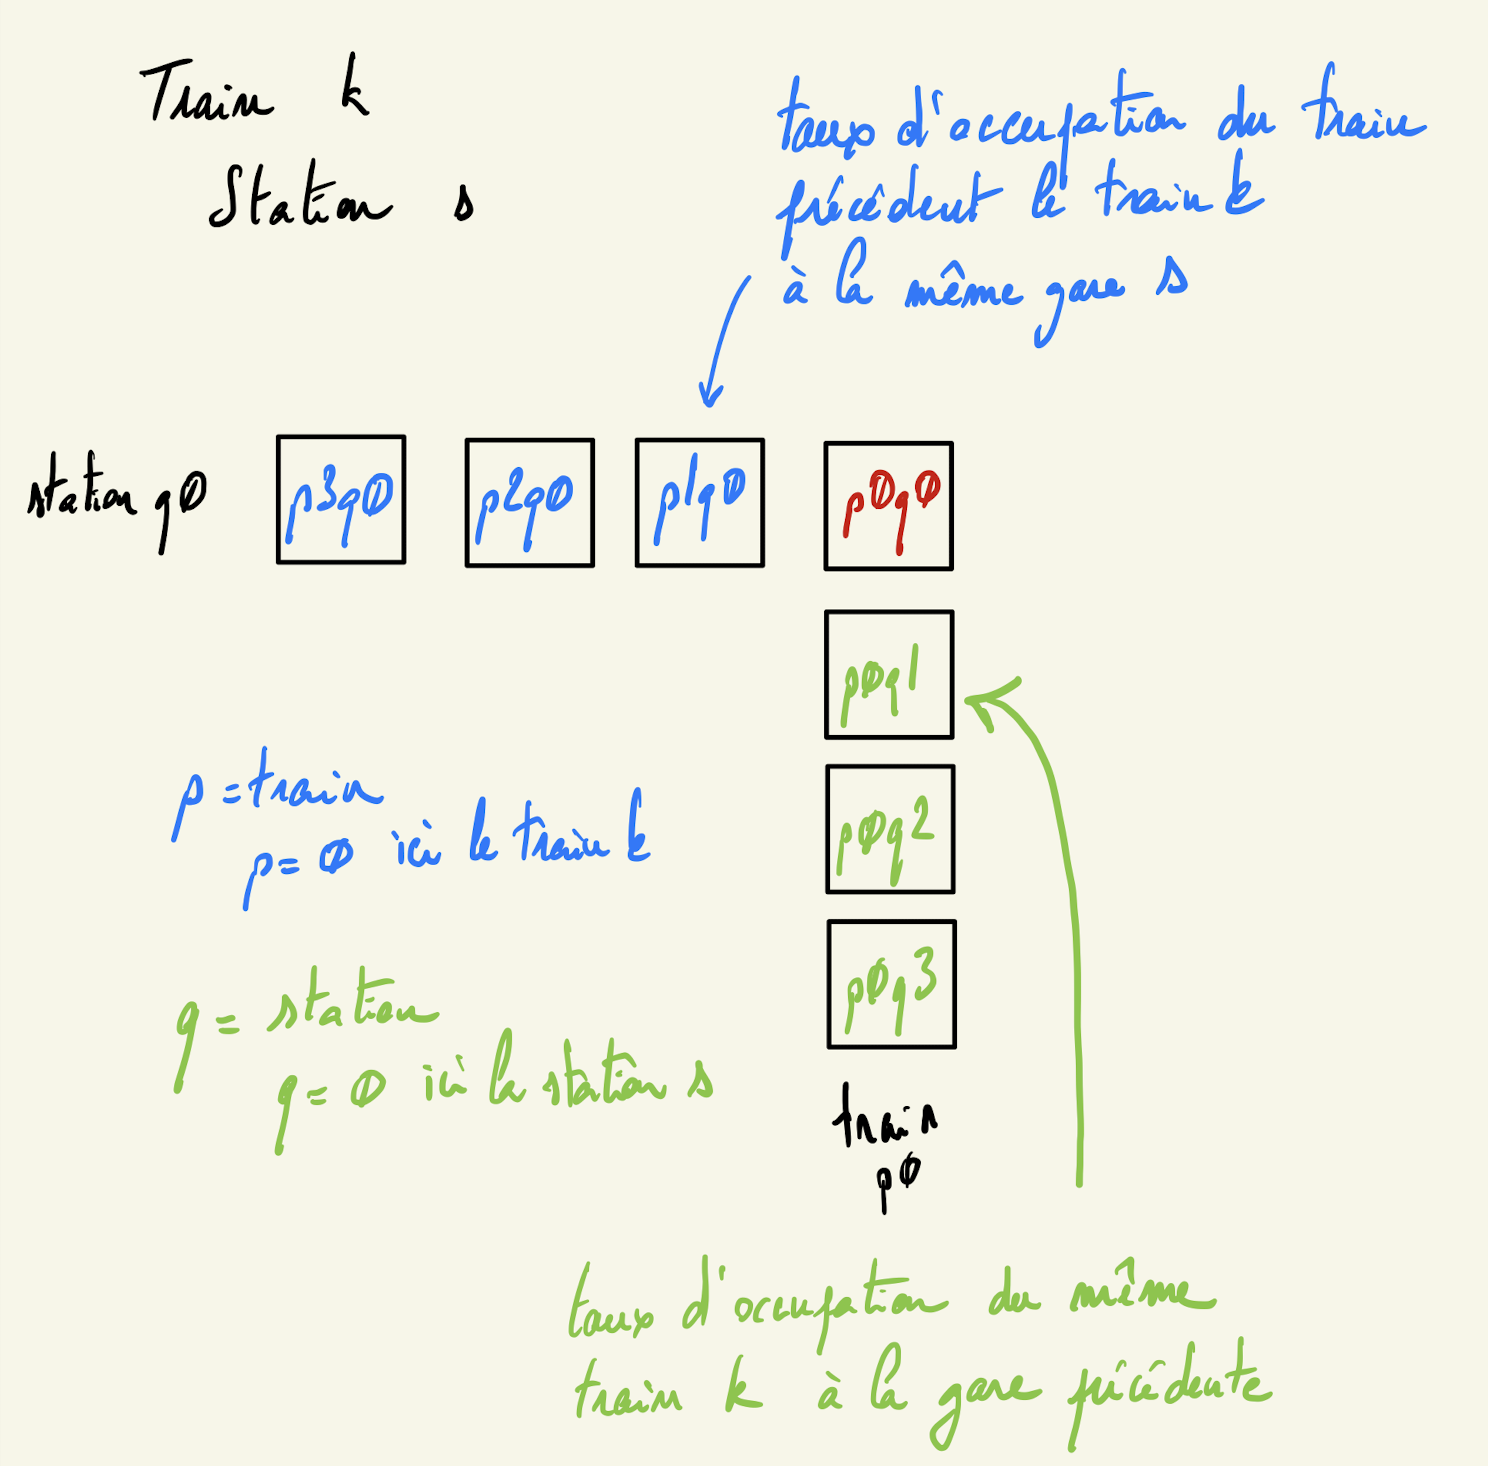 Train k
Station s
taux d'occupation du train
précédent le train k
à la même gare s
station q0
p3q0
p2q0
p1q0
p0q0
p0q1
p0q2
p0q3
p = train
p = 0 ici le train k
q = station
q = 0 ici la station s
train
p0
taux d'occupation du même
train k à la gare précédente